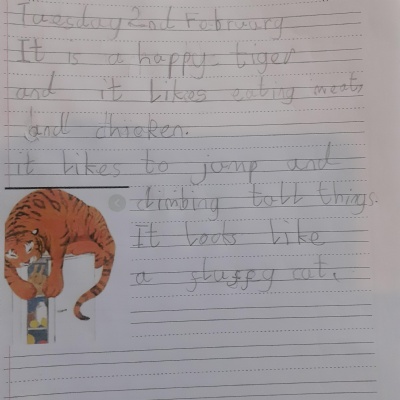 Tuesday 2nd February
It is a happy tiger
and it likes eating meat
and chicken.
it likes to jump and
climbing tall things.
It looks like
a fluffy cat.